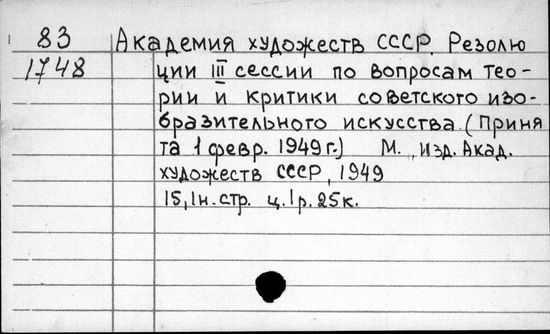 83 Академия художеств СССР. Резолю
1748 ции III сессии по вопросам тео-
рии и критики советского изо-
бразительного искусства. (Приня
та 1 февр. 1949 г.) М., изд. Акад.
художеств СССР, 1949
15, 1н. стр. ц. 1 р. 25 к.